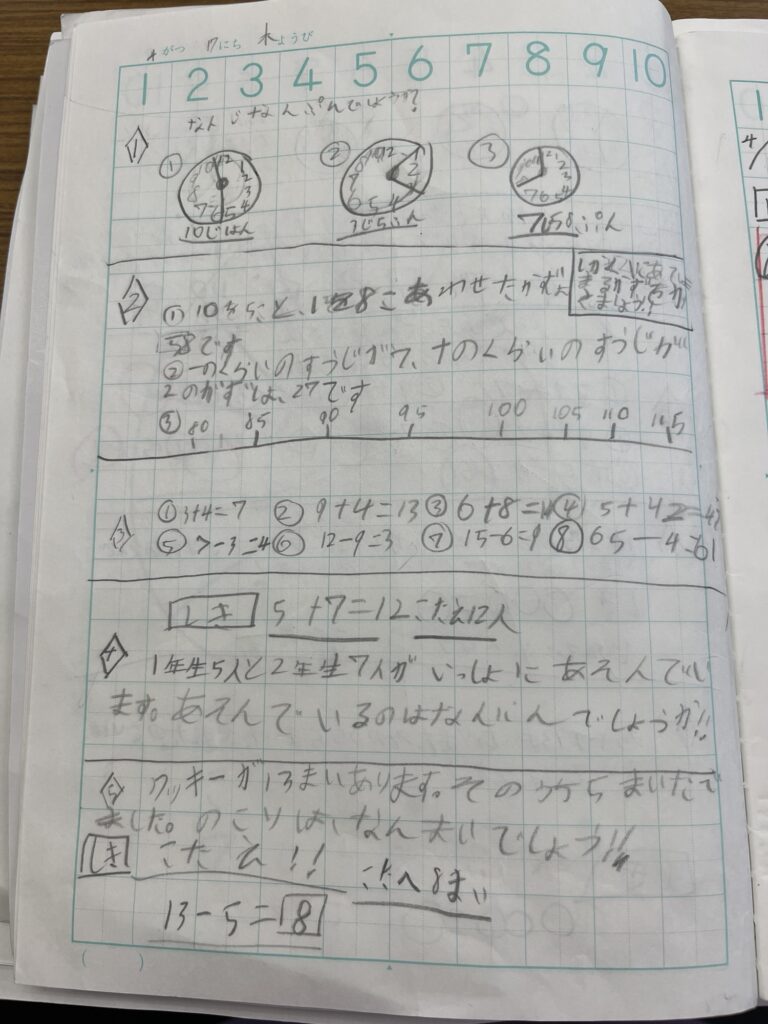 4がつ 17にち 木ようび
1 2 3 4 5 6 7 8 9 10
なんじなんぷんでしょうか?
1 ① ② ③
10じはん
7じ58ぷん
2 ① 10を5こと、1を8こあわせたかずは
58です
②一のくらいのすうじが7、十のくらいのすうじが
2のかずは、27です
③ 80 85 90 95 100 105 110 115
3 ①3+4=7 ② 9+4=13 ③ 6+8=14 ④ 5+42=47
⑤ 7-3=4 ⑥ 12-9=3 ⑦ 15-6=9 ⑧ 65-4=61
しき 5+7=12 こたえ12人
4 1年生5人と2年生7人がいっしょにあそんでい
ます。あそんでいるのはなんにんでしょうか!!
5 クッキーが13まいあります。その
ました。のこりはなんまいでしょう!!
しき こたえ!!
こたへ8まい
13-5=8
( )